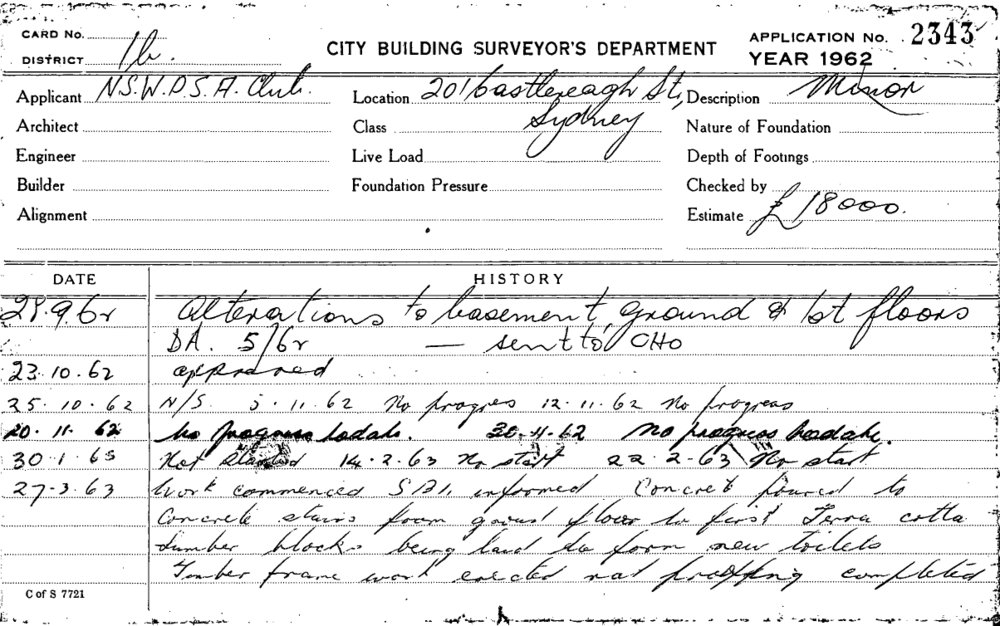 CARD No.
DISTRICT 1b.
CITY BUILDING SURVEYOR'S DEPARTMENT
APPLICATION No. 2343
YEAR 1962
Applicant N.S.W.D.S.A. Club. Location 201 Castlereagh St, Sydney Description Minor
Architect Class Nature of Foundation
Engineer Live Load Depth of Footings
Builder Foundation Pressure Checked by
Alignment Estimate £18000.
DATE HISTORY
28.9.62 Alterations to basement, ground & 1st floors
DA. 5/62 — sent to CHO
23.10.62 approved
25.10.62 N/S. 5.11.62 No progress 12.11.62 No progress
20.11.62 No progress todate. 30.11.62 No progress todate.
30.1.63 Not Started 14.2.63 No start 22.2.63 No start
27.3.63 Work commenced informed Concrete poured to
Concrete stairs from ground floor to first Terra cotta
lumber blocks being laid to form new toilets
Timber frame work erected completed
C of S 7721